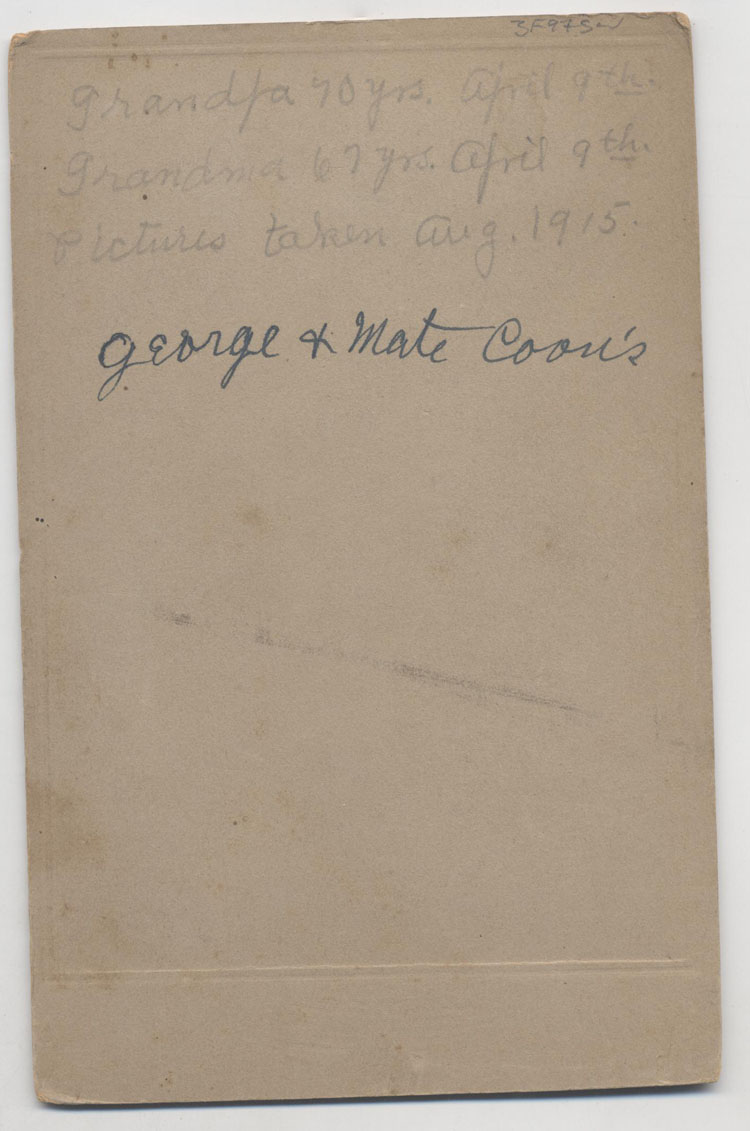 Grandpa 70 yrs. April 9th.
Grandma 67 yrs. April 9th.
Pictures taken Aug. 1915.
George & Mate Coon's